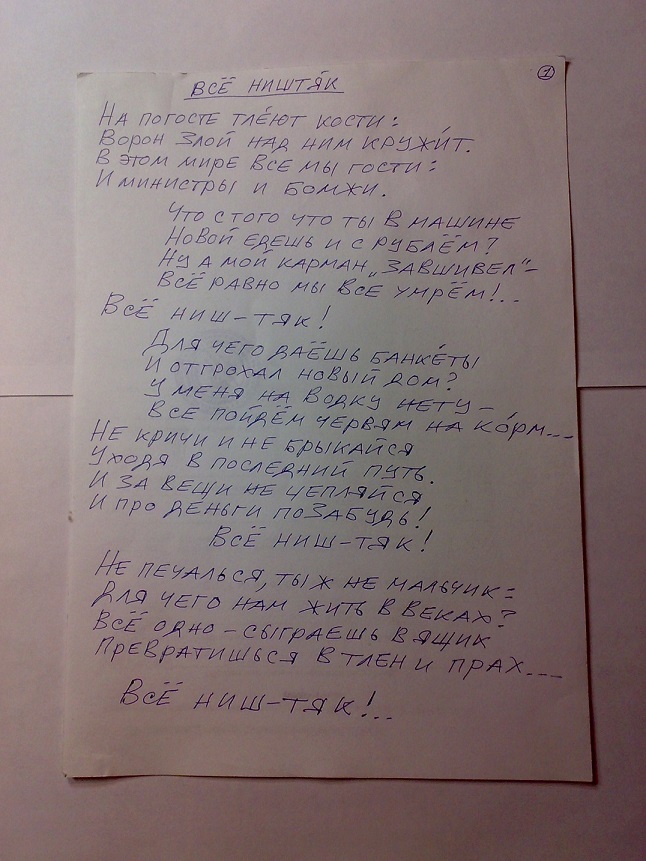 ВСЁ НИШТЯ́К
1
НА ПОГОСТЕ ТЛЕ́ЮТ КОСТИ:
ВОРОН ЗЛОЙ НАД НИМ КРУЖИ́Т.
В ЭТОМ МИРЕ ВСЕ МЫ ГОСТИ:
И МИНИСТРЫ И БОМЖИ.
ЧТО С ТОГО ЧТО ТЫ В МАШИНЕ
НОВОЙ ЕДЕШЬ И С РУБЛЁМ?
НУ А МОЙ КАРМАН „ЗАВШИВЕЛ" –
ВСЁ РАВНО МЫ ВСЕ УМРЁМ!..
ВСЁ НИШ-ТЯК!
ДЛЯ ЧЕГО ДАЁШЬ БАНКЕ́ТЫ
И ОТГРОХАЛ НОВЫЙ ДОМ?
У МЕНЯ НА ВОДКУ НЕТУ –
ВСЕ ПОЙДЁМ ЧЕРВЯМ НА КО́РМ...
НЕ КРИЧИ И НЕ БРЫКАЙСЯ
УХОДЯ В ПОСЛЕДНИЙ ПУТЬ.
И ЗА ВЕЩИ НЕ ЦЕПЛЯЙСЯ
И ПРО ДЕНЬГИ ПОЗАБУДЬ!
ВСЁ НИШ-ТЯК!
НЕ ПЕЧАЛЬСЯ, ТЫ Ж НЕ МАЛЬЧИК:
ДЛЯ ЧЕГО НАМ ЖИТЬ В ВЕКАХ?
ВСЁ ОДНО – СЫГРАЕШЬ В ЯЩИК
ПРЕВРАТИШЬСЯ В ТЛЕН И ПРАХ...
ВСЁ НИШ-ТЯК!..